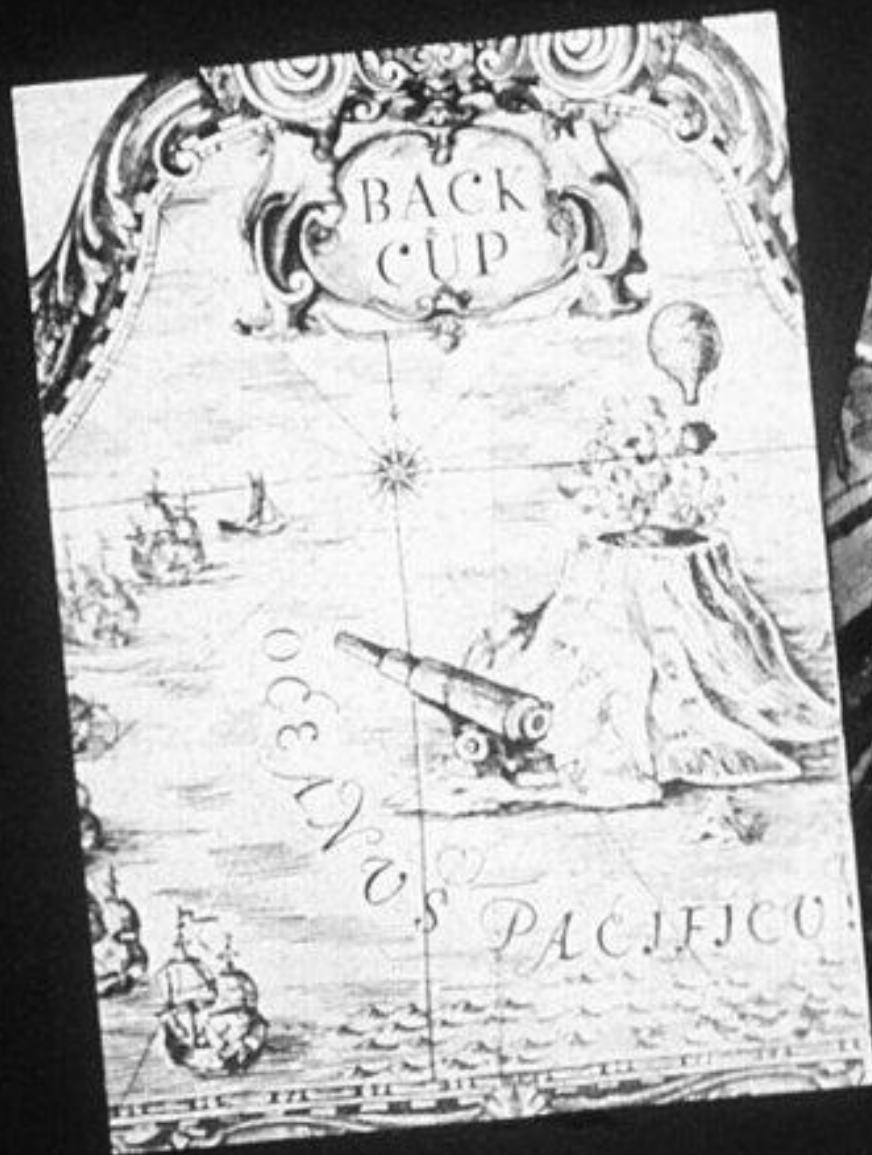 BACK
CUP
OCEANUS PACIFICU